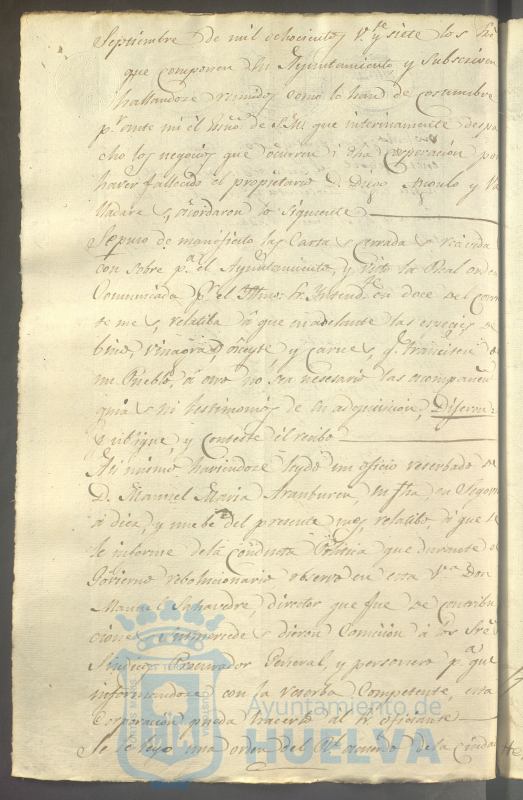 Septiembre de mil ochocientos v.te y siete los Sres
que componen dho Ayuntamiento y Subscriven
hallandose reunidos como lo han de costumbre
p.r ante mi el Essno de S.M. que interinamente despa
cho los negocios que ocurren á dha Corporacion por
haver fallecido el propietario D. Diego Angulo y Va
lladares, acordaron lo siguiente
Se puso de manifiesto las Cartas cerradas recividas
con sobre p.a el Ayuntamiento, y vista la Real orden
Comunicada p.r el Sr. Intend.te en doce del corrien
te mes, relatiba á que en adelante las especies de
bino, vinagre, aceyte, y carnes, q.e transiten de
un Pueblo, á otro no sea nesesario las acompañen
guias ni testimonios de su adquisicion, Dijeron:
Publique, y conteste el recibo
Asi mismo haviendose leydo un oficio reserbado de
D. Manuel Maria Aranburu, su fha, en Segovia
á diez, y nuebe del presente mes, relatibo, á que se
le informe dela conducta Politica que durante el
Gobierno rebolucionario observó en esta V.a Don
Manuel Saavedra, director que fue de contribu
ciones, Sus mercedes dieron Comision á los Sres
Sindico Procurador General, y personero p.a que
informandose con la reserba Competente, esta
Corporacion pueda hacerlo al Sr. oficiante
Se leyo una orden del R.l acuerdo de la ciudad
Ayuntamiento de
HUELVA